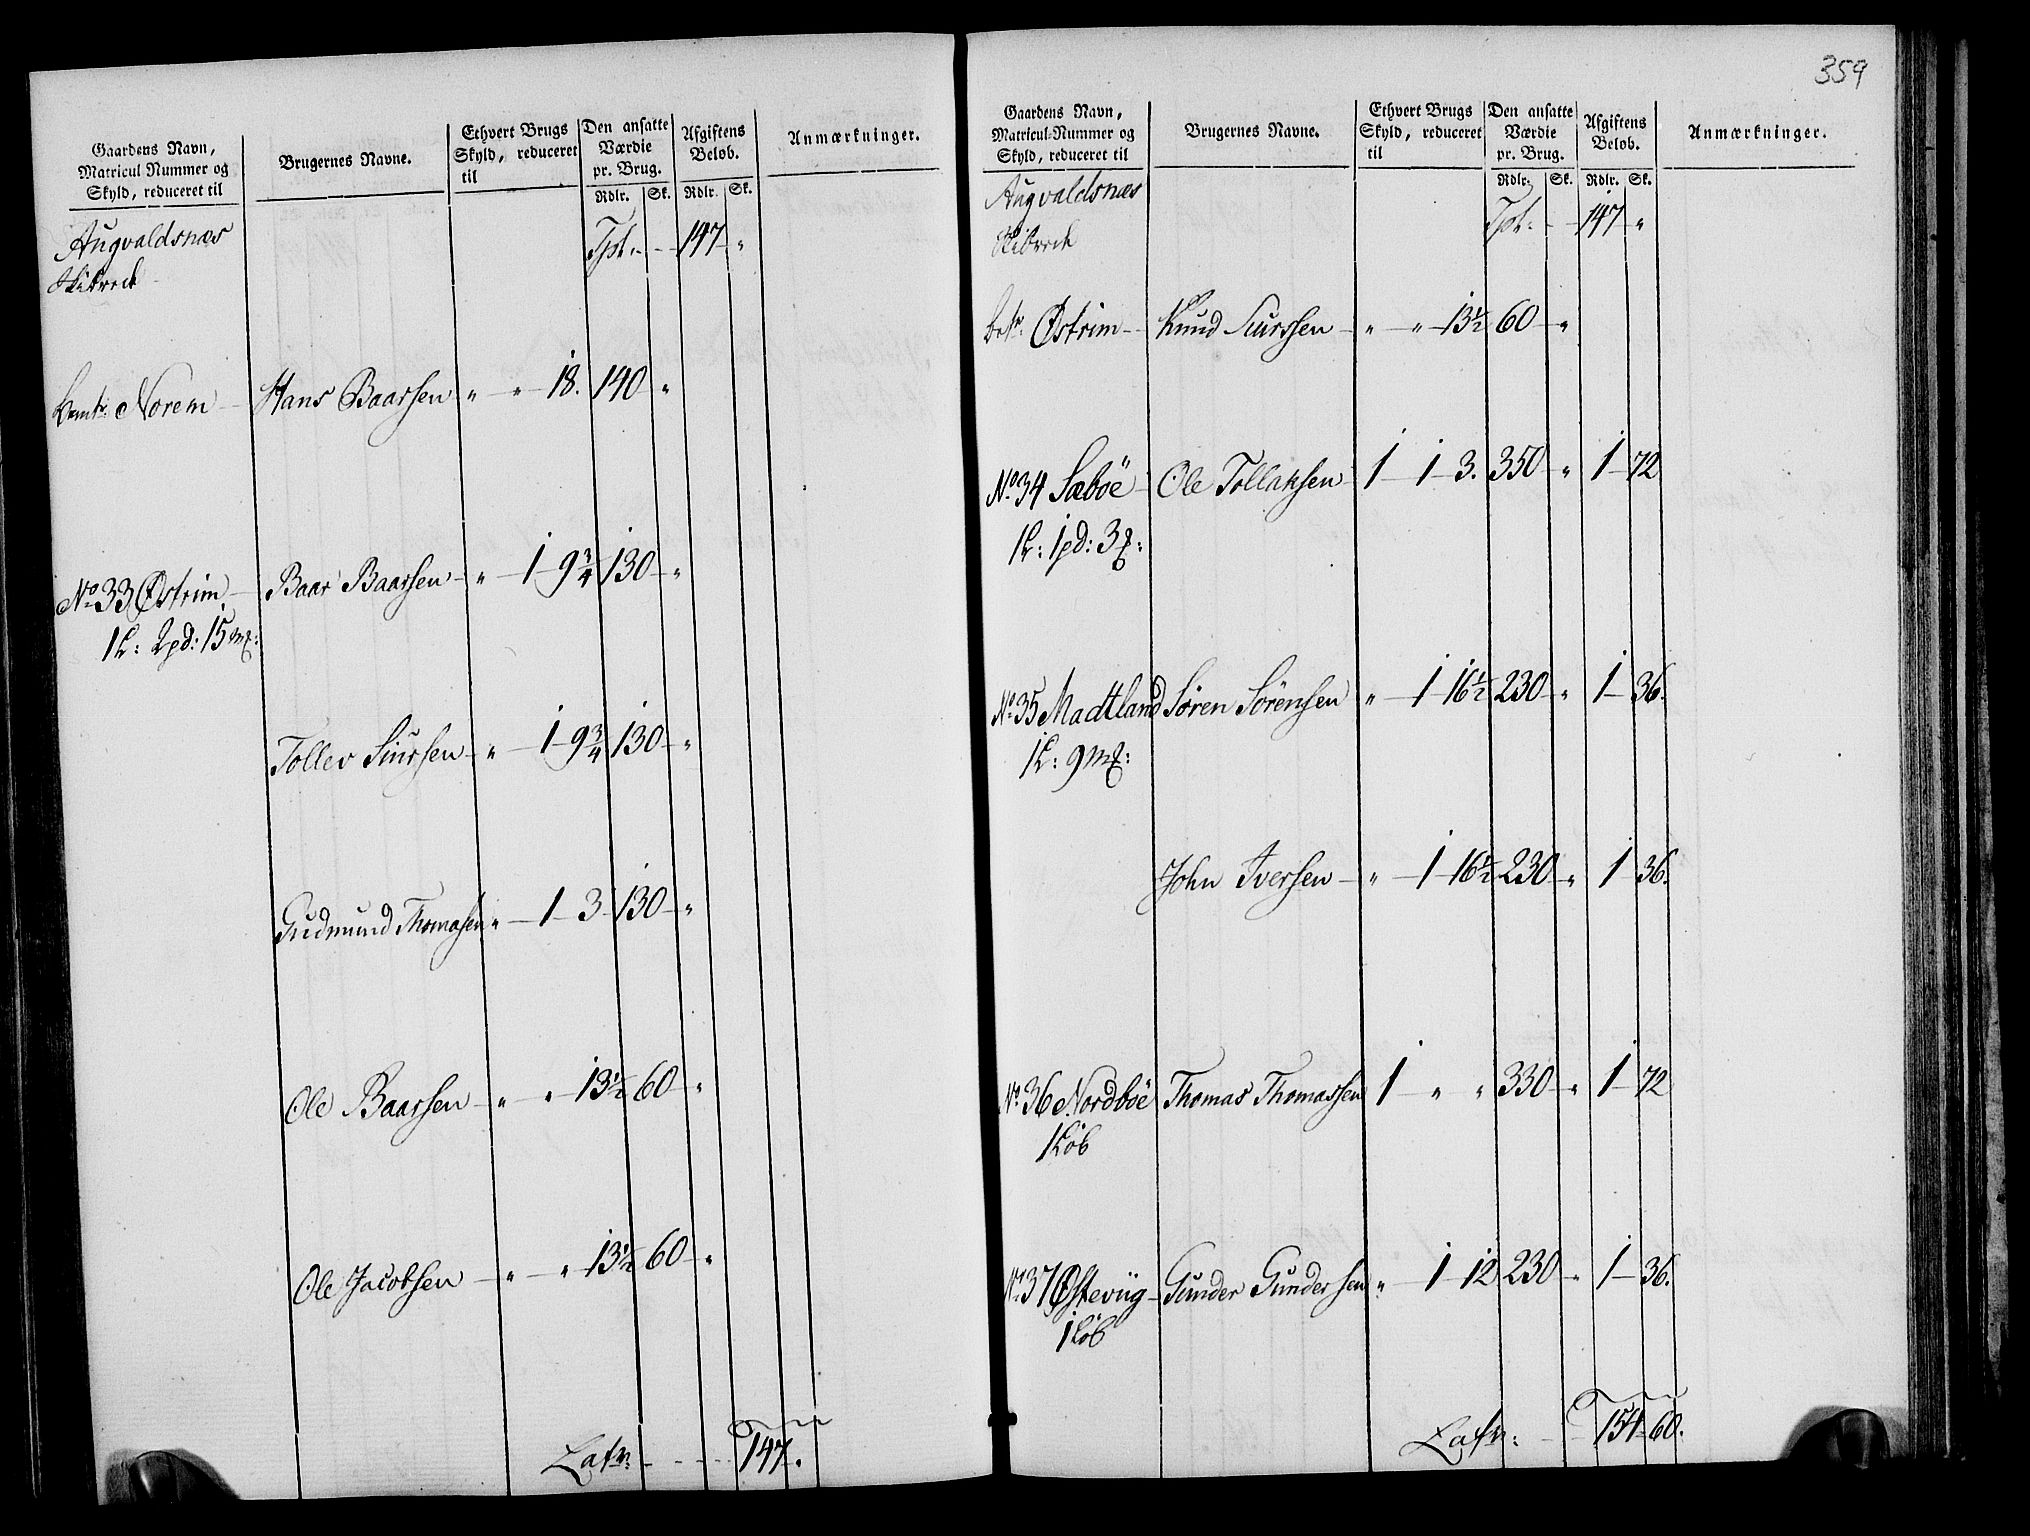 Gaardens Navn,
Matricul Nummer og
Skyld, reduceret til
Brugernes Navne.
Ethvert Brugs
Skyld, reduceret
til
Den ansatte
Værdie
pr. Brug.
Rdlr. Sk.
Afgiftens
Beløb.
Rdlr. Sk.
Anmærkninger.
Augvaldsnæs Tpt. 147 "
Skibrede
Norem Hans Baarsen " " 18. 140 "
No 33 Østrim Baar Baarsen " 1 9¾ 130 "
1L: 2pd: 15mk:
Tollev Siursen " 1 9¾ 130 "
Gudmund Thomasen " 1 3 130 "
Ole Baarsen " " 13½ 60 "
Ole Jacobsen " " 13½ 60 "
Latr: 147 "
359
Gaardens Navn,
Matricul-Nummer og
Skyld, reduceret til
Brugernes Navne.
Ethvert Brugs
Skyld, reduceret
til
Den ansatte
Værdie
pr. Brug.
Rdlr. Sk.
Afgiftens
Beløb.
Rdlr. Sk.
Anmærkninger.
Augvaldsnæs
Skibrede Tpt. 147 "
Østrim Knud Siurssen " " 13½ 60 "
No 34 Sæbøe Ole Tollaksen 1 1 3. 350 " 1 72
1L: 1pd: 3mk:
No 35 Madtland Søren Sørensen " 1 16½ 230 " 1 36.
1L: 9mk:
John Iversen " 1 16½ 230 " 1 36.
No 36 Nordbøe Thomas Thomassen 1 " " 330 " 1 72
1 Løb
No 37 Østeviig Gunder Gundersen " 1 12 230 " 1 36.
1 Løb
Latr: 154 60.